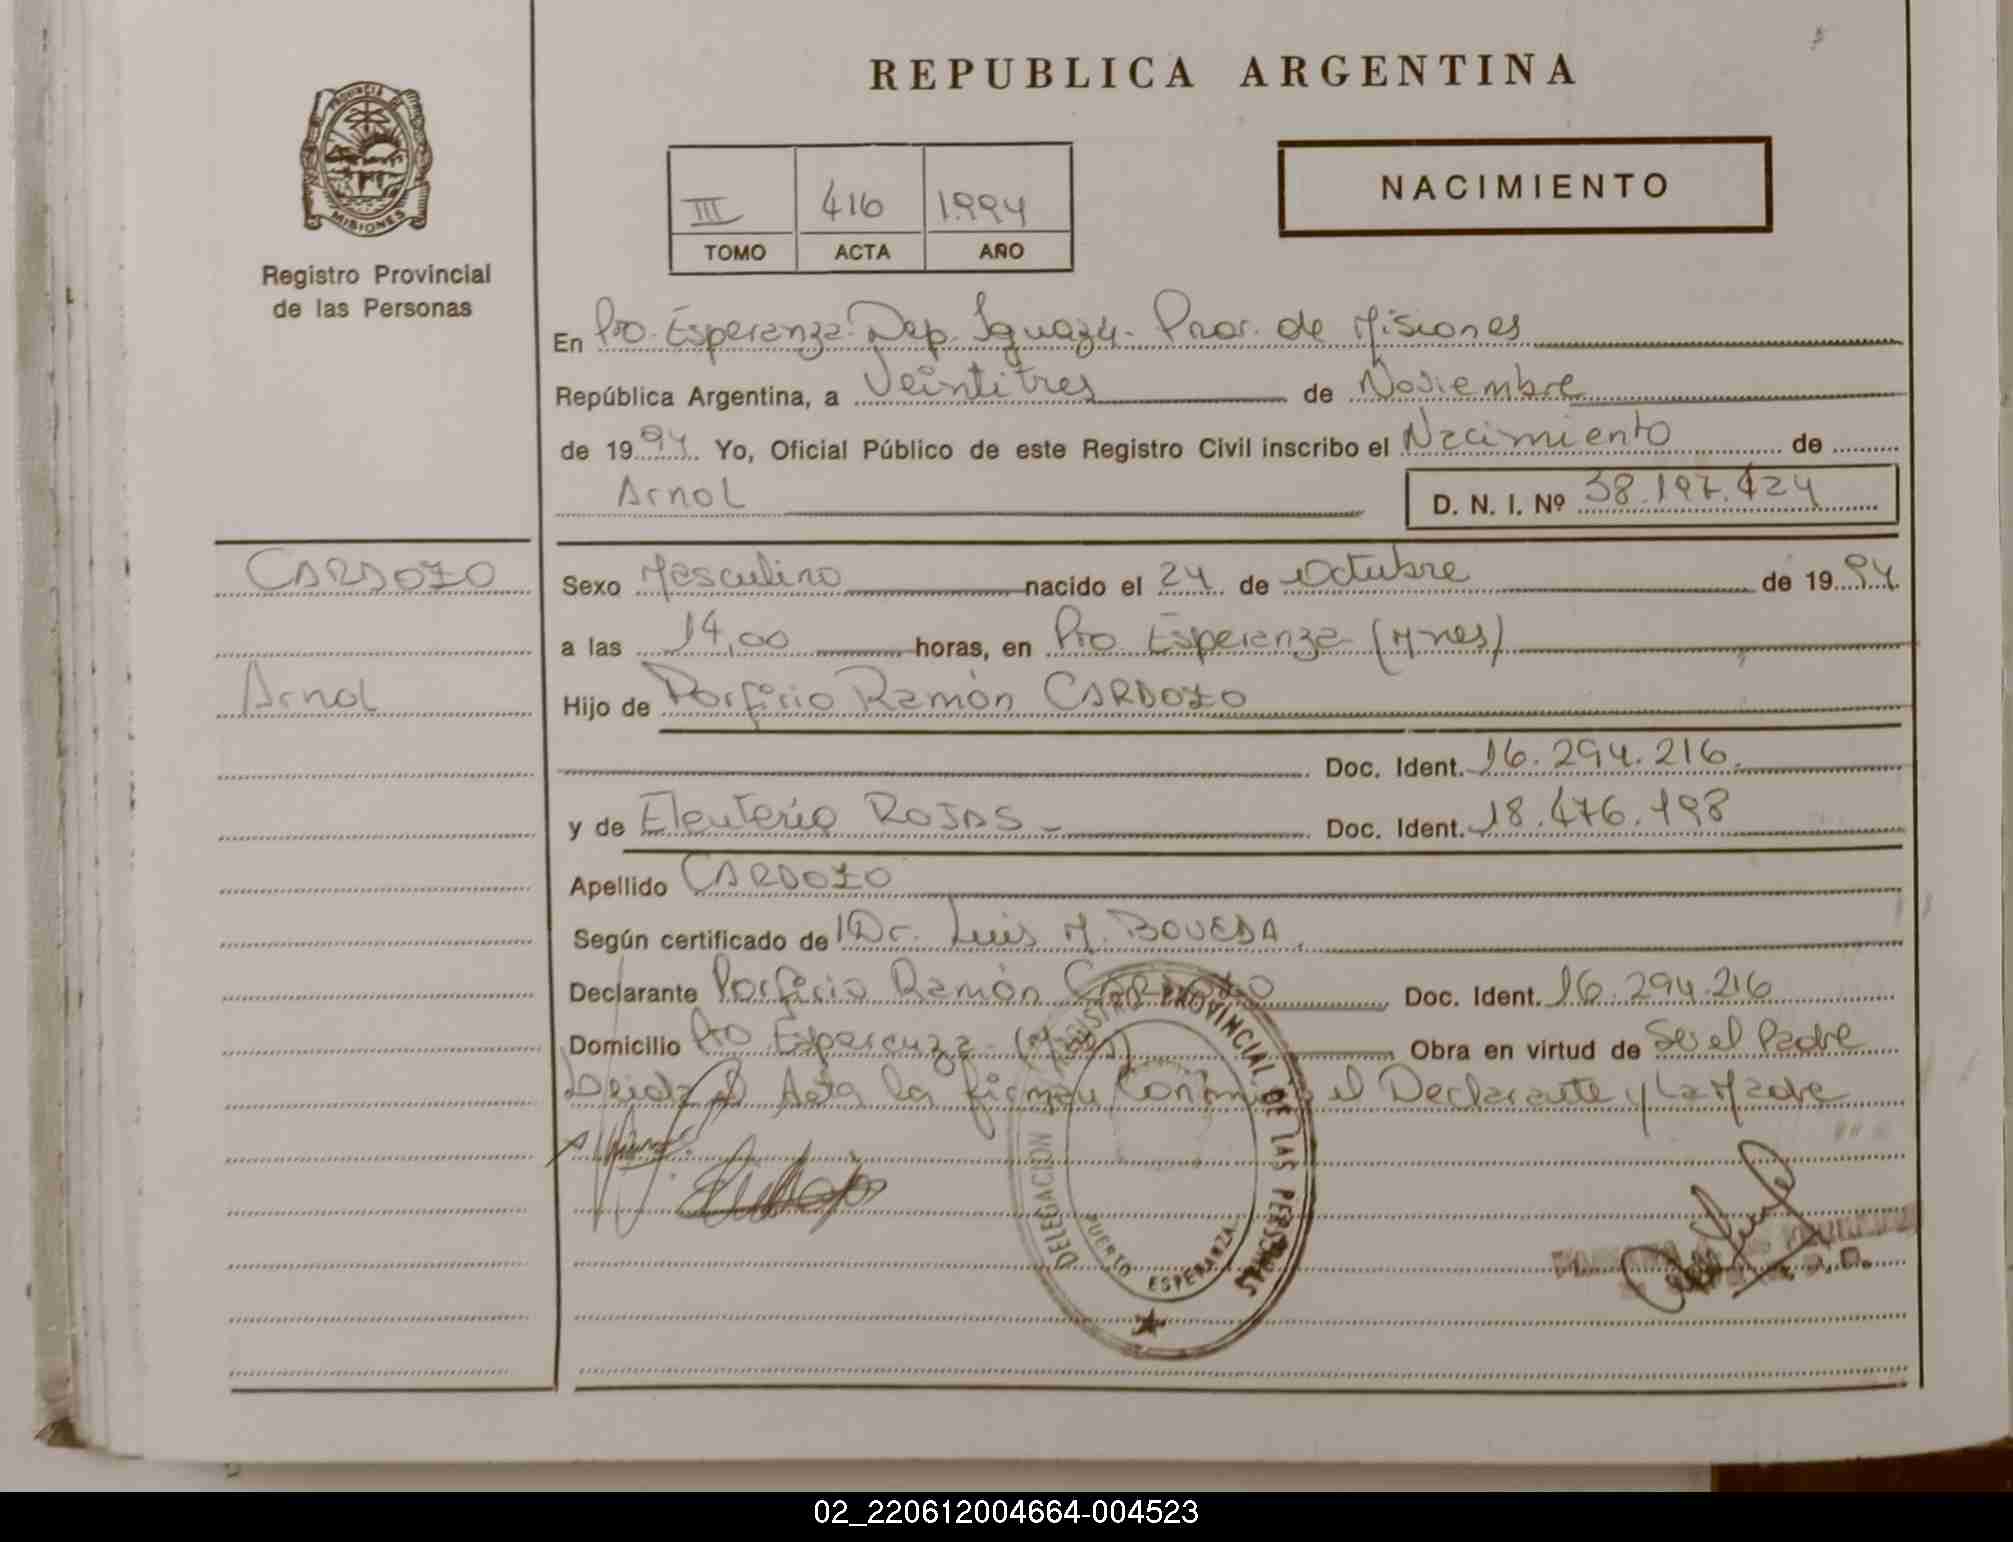 REPUBLICA ARGENTINA
PROVINCIA DE
MISIONES
Registro Provincial
de las Personas
NACIMIENTO
III 416 1994
TOMO ACTA AÑO
En Pto. Esperanza - Dep. Iguazú - Prov. de Misiones
República Argentina, a Veintitres de Noviembre
de 1994 Yo, Oficial Público de este Registro Civil inscribo el Nacimiento de
Arnol D. N. I. Nº 38.197.424
CARDOZO
Arnol
Sexo Masculino nacido el 24 de Octubre de 1994
a las 14,00 horas, en Pto Esperanza (Mnes)
Hijo de Porfirio Ramón CARDOZO
Doc. Ident. 16.294.216.
y de Eleuteria ROJAS - Doc. Ident. 18.476.198
Apellido CARDOZO
Según certificado de Dr. Luis M. BOVEDA.
Declarante Porfirio Ramón CARDOZO Doc. Ident. 16.294.216
Domicilio Pto Esperanza - (Mnes) Obra en virtud de Ser el Padre
Leida el Acta la firman Conmigo el Declarante y La Madre
DELEGACION REGISTRO PROVINCIAL DE LAS PERSONAS
PUERTO ESPERANZA
02_220612004664-004523